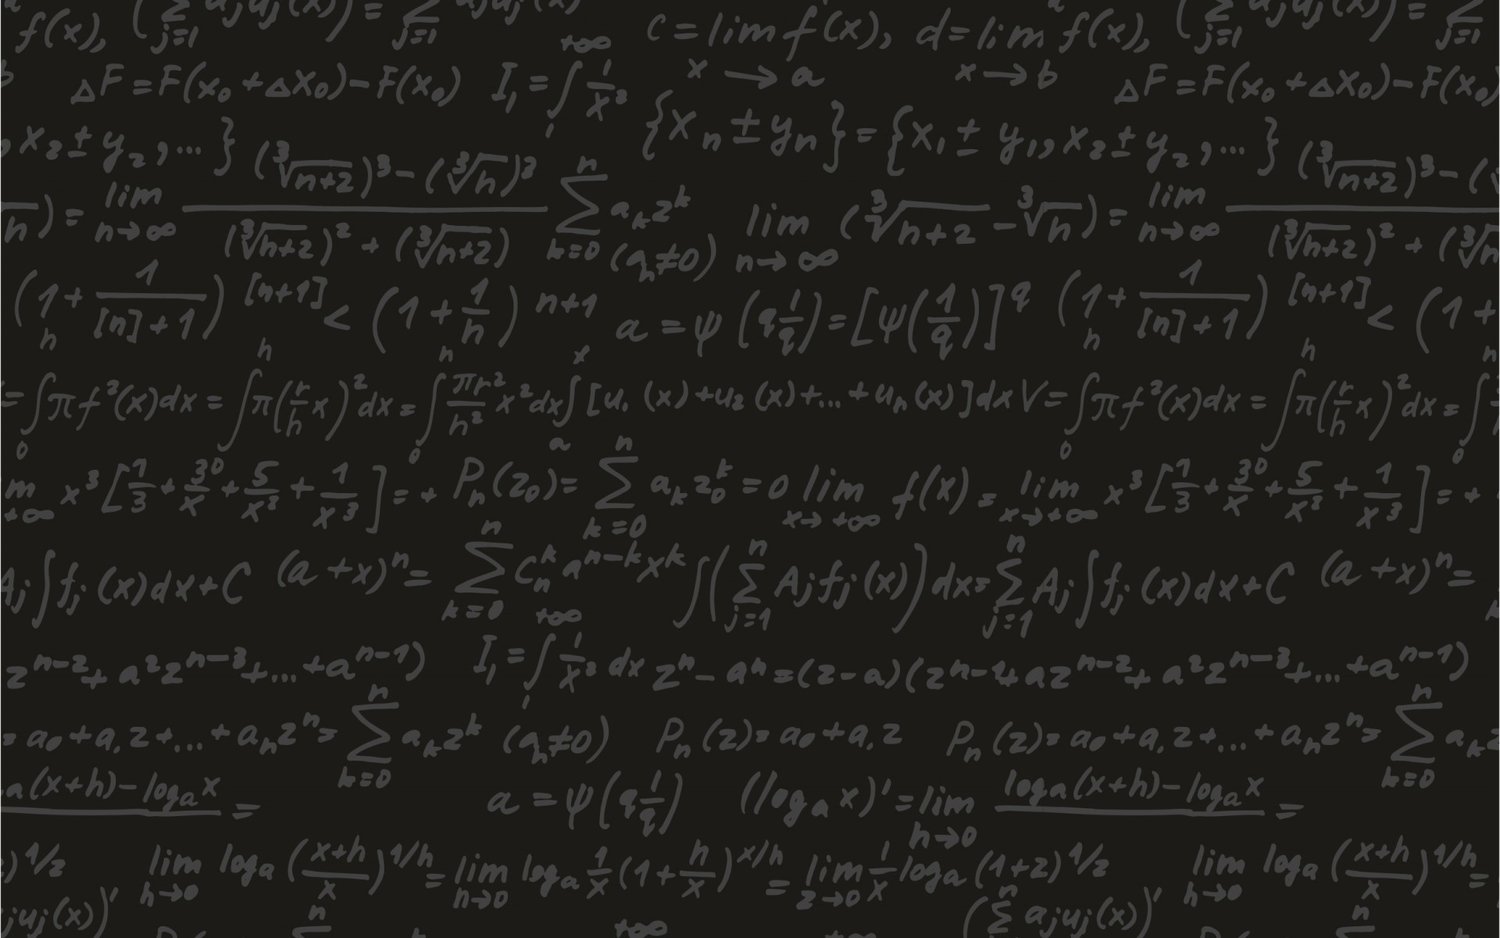 f(x), (∑ j=1 ajuj(x)) = ∑ j=1 c = lim x→a f(x), d = lim x→b f(x), (∑ j=1 ajuj(x)) = ∑ j=1
ΔF = F(x₀ + Δx₀) − F(x₀) I₁ = ∫₁^+∞ 1/x² ΔF = F(x₀ + Δx₀) − F(x₀)
x₂ ± y₂, ...} {xₙ ± yₙ} = {x₁ ± y₁, x₂ ± y₂, ...}
) = lim n→∞ ((∛n+2)³ − (∛n)³)/((∛n+2)² + (∛n+2) ∑ k=0 n aₖzᵏ (aₙ≠0) lim n→∞ (∛n+2 − ∛n) = lim n→∞ (∛n+2)³ − ( / (∛n+2)² + (∛n
(1 + 1/[n]+1)^[n+1] < (1 + 1/n)^n+1 a = ψ(q 1/q) = [ψ(1/q)]^q (1 + 1/[n]+1)^[n+1] < (1 +
= ∫₀^h πf²(x)dx = ∫ π(r/h x)²dx = ∫₀^h πr²/h² x²dx ∫ₐ^x [u₁(x) + u₂(x) + ... + uₙ(x)]dx V = ∫₀^h πf²(x)dx = ∫ π(r/h x)²dx = ∫₀
m +∞ x³[1/3 + 30/x + 5/x² + 1/x³] = + Pₙ(z₀) = ∑ k=0 n aₖz₀ᵏ = 0 lim x→+∞ f(x) = lim x→+∞ x³[1/3 + 30/x + 5/x² + 1/x³] = +
Aj∫fj(x)dx + C (a + x)ⁿ = ∑ k=0 n Cₙᵏaⁿ⁻ᵏxᵏ ∫(∑ j=1 n Ajfj(x))dx = ∑ j=1 n Aj∫fj(x)dx + C (a + x)ⁿ =
zⁿ⁻² + a²zⁿ⁻³ + ... + aⁿ⁻¹) I₁ = ∫₁^+∞ 1/x² dx zⁿ − aⁿ = (z − a)(zⁿ⁻¹ + azⁿ⁻² + a²zⁿ⁻³ + ... + aⁿ⁻¹)
= a₀ + a₁z + ... + aₙzⁿ = ∑ k=0 n aₖzᵏ (aₙ≠0) Pₙ(z) = a₀ + a₁z Pₙ(z) = a₀ + a₁z + ... + aₙzⁿ = ∑ k=0 n aₖz
a(x+h) − logₐx = a = ψ(q 1/q) (logₐx)' = lim h→0 (logₐ(x+h) − logₐx) =
)1/z lim h→0 logₐ(x+h/x)1/h = lim n→0 logₐ 1/x (1 + h/x)x/h = lim z→0 1/x logₐ(1+z)1/z lim h→0 logₐ(x+h/x)1/h =
juj(x))' n +∞ (∑ n ajuj(x))' n